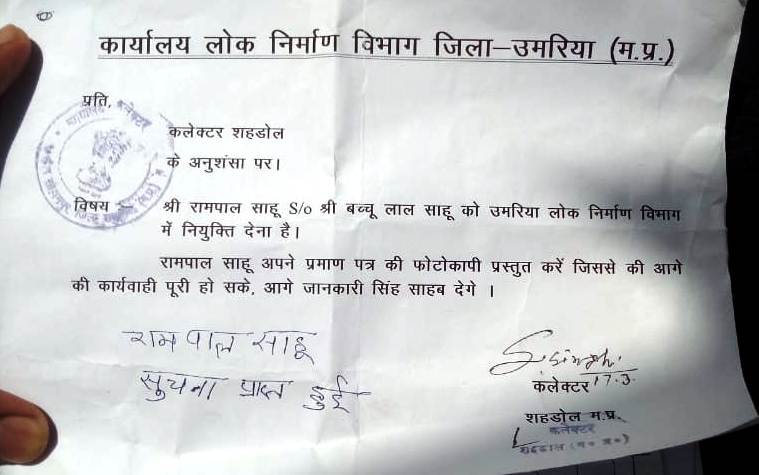 कार्यालय लोक निर्माण विभाग जिला–उमरिया (म.प्र.)
प्रति,
कलेक्टर शहडोल
के अनुशंसा पर।
विषय :– श्री रामपाल साहू S/o श्री बच्चू लाल साहू को उमरिया लोक निर्माण विभाग
में नियुक्ति देना है।
रामपाल साहू अपने प्रमाण पत्र की फोटोकापी प्रस्तुत करें जिससे की आगे
की कार्यवाही पूरी हो सके, आगे जानकारी सिंह साहब देगे ।
रामपाल साहू
सुचना प्राप्त हुई
S. Singh.
17.3.
कलेक्टर
शहडोल म.प्र.
कलेक्टर
शहडोल (म० प्र०)